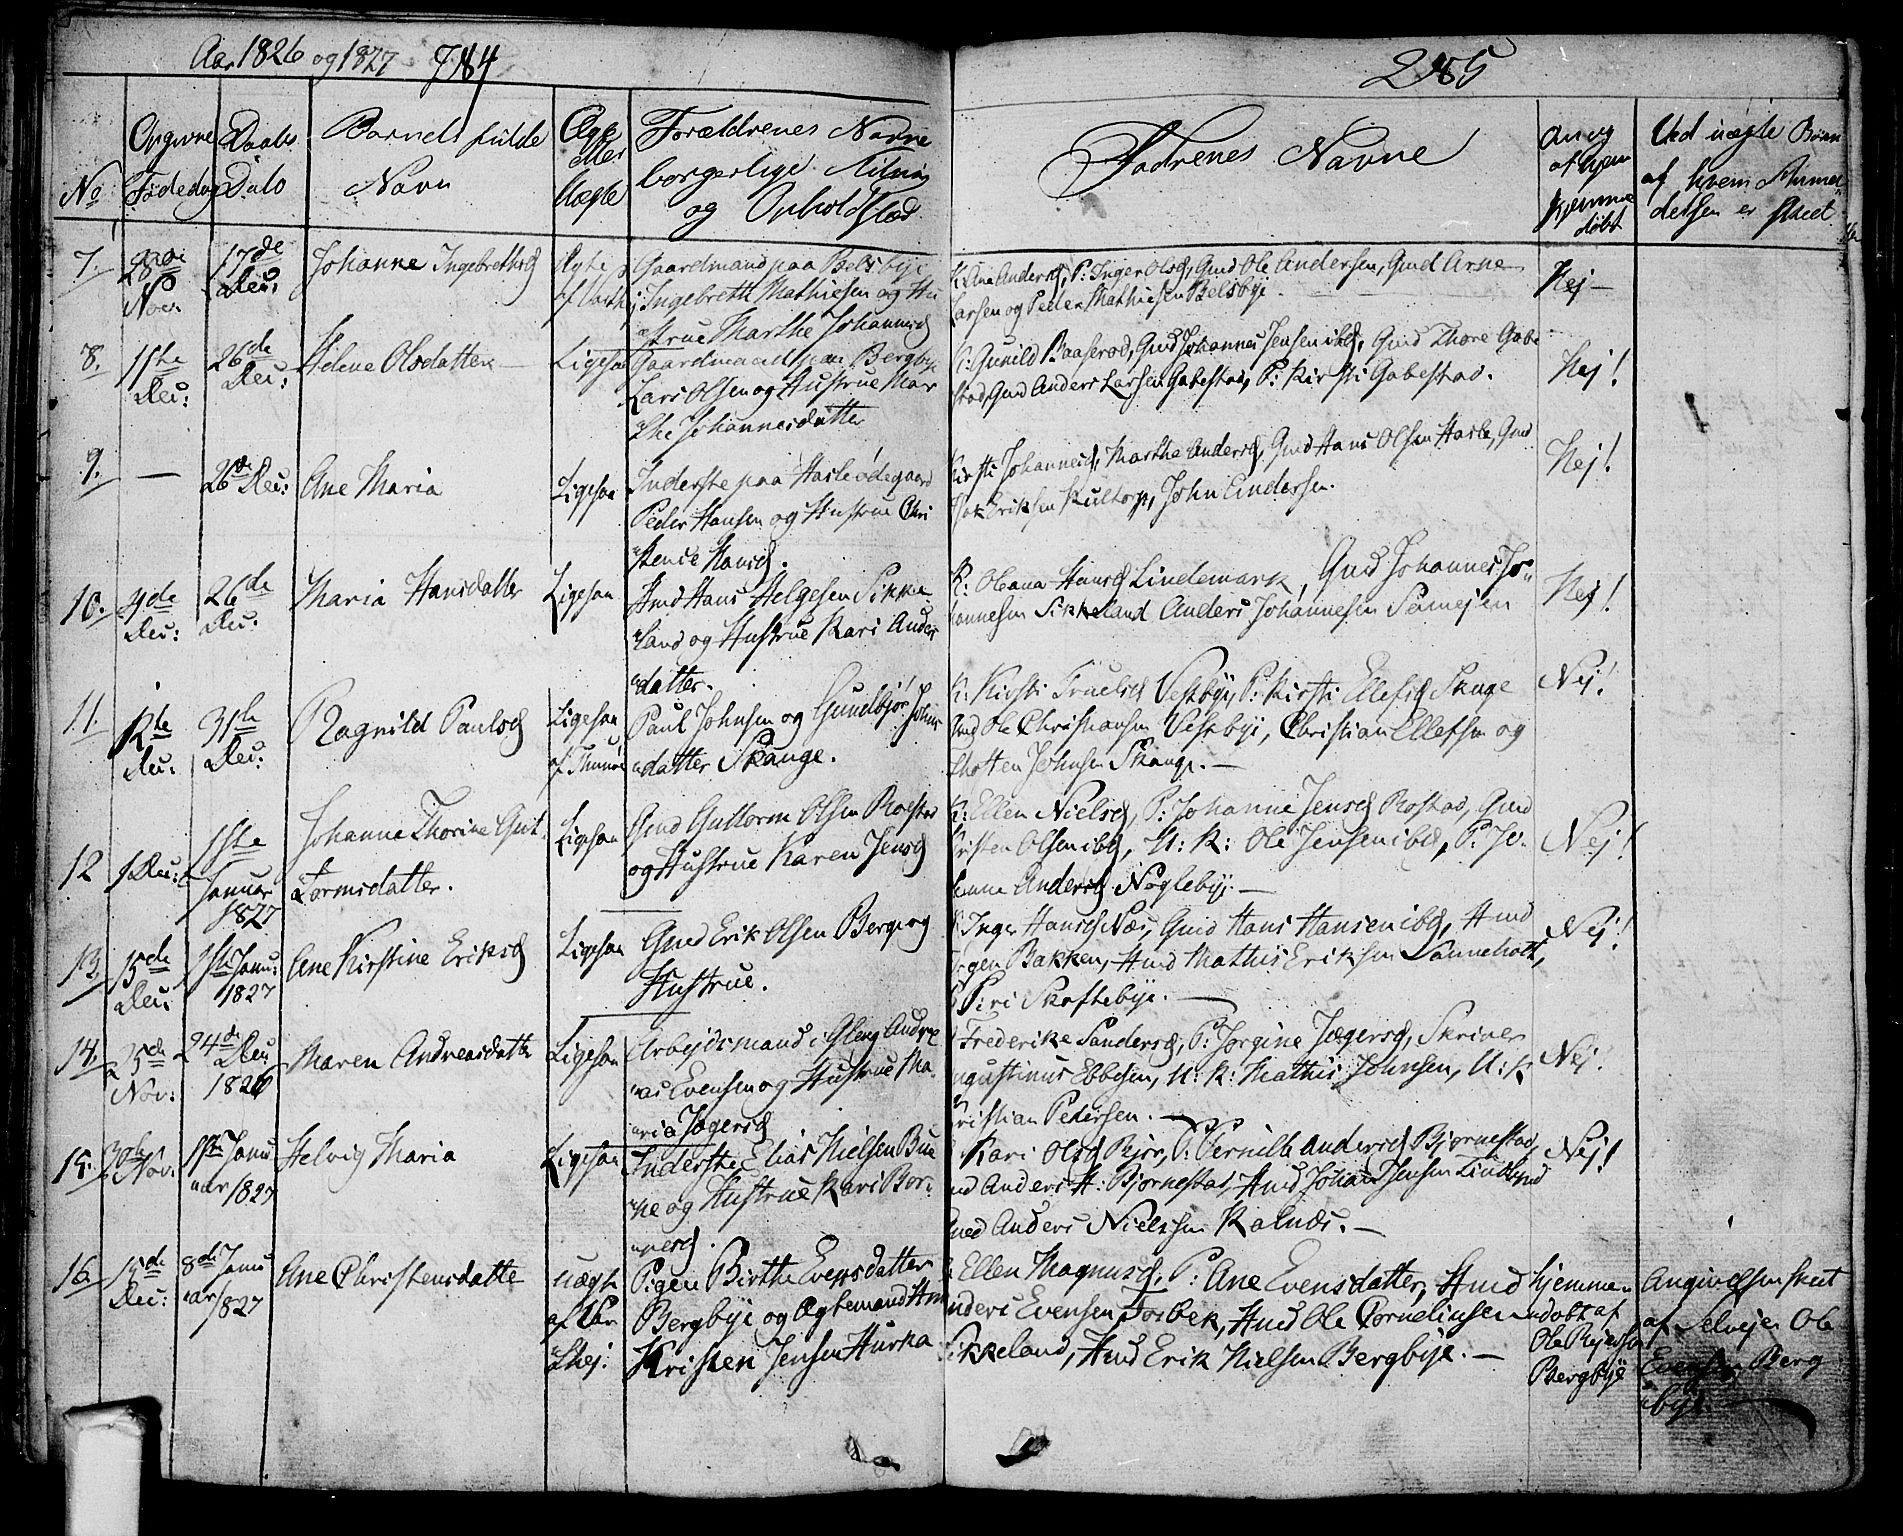 Aar 1826 og 1827 784
285
No
Opgivne Fødedag
Daabs Dato
Barnets fulde Navn
Ægte eller Uægte
Forældrenes Navne
borgerlige Stilling
og Opholdssted
Fadrenes Navne
om og af hvem hjemme døbt
Ved uægte Børn
af hvem Anmel
delsen er skeet
7. 28de Nov. 17de Dec: Johanne Ingebrethsd Ægte Gaardmand paa Belsbye
Ingebreth Mathiesen og Hu
strue Marthe Johannesd
K: Ane Andersd, P: Inger Olsd, Gmd Ole Andersen, Gmd Arne
Larsen og Peder Mathiesen Belsbye. Nej
8. 11te Dec: 26de Dec: Helene Olsdatter Ligesaa Gaardmand paa Bergbye
Lars Olsen og Hustrue Mar
the Johannesdatter
K: Gunild Baaserød, Gmd Johannes Jensen ibd, Gmd Thore Gabe
stad, Gmd Anders Larsen Gabestad, P: Kirsti Gabestad. Nej!
9. — 26de Dec: Ane Maria Ligesaa Inderste paa Hasle ødegaard
Peder Hansen og Hustrue Chri
stence Hansd.
Kirsti Johannesd, Marthe Andersd, Gmd Hans Olsen Hasle, Gmd
Isak Eriksen Kultorp, John Endersen. Nej!
10. 9de Dec: 26de Dec: Maria Hansdatter Ligesaa Hmd Hans Helgesen Sikke
land og Hustrue Kari Anders
datter.
K: Oleana Hansd Lindemark, Gmd Johannes Jo
hannesen Sikkeland Anders Johannesen Semejen Nej!
11. 1te Dec: 31te Dec: Ragnild Paulsd Ligesaa
af Thunøe
Paul Johnsen og Gundbjør Johns
datter Skauge.
K: Kirsti Truelsd Vestbye, P: Kirsti Ellefsd Skauge
Gmd Ole Christiansen Vestbye, Christian Ellefsen og
Thosten Johnsen Skauge. — Nej!
12 1 Dec: 1ste Januar 1827 Johanne Thorine Gut
tormsdatter. Ligesaa Gmd Guttorm Olsen Rostad
og Hustrue Karen Jensd
K: Ellen Nielsd, P: Johanne Jensd Rostad, Gmd
Kristen Olsen ibd, U: K: Ole Jensen ibd, P: Jo
hanne Andersd Noglebye — Nej!
13. 15de Dec: 1ste Janu: 1827 Ane Kirstine Eriksd Ligesaa Gmd Erik Olsen Berge og
Hustrue.
Inger Hansd Næs, Gmd Hans Hansen ibd, Hmd
Bakken, Hmd Mathis Eriksen Sanneholt,
P: Siri Skoftebye. — Nej!
14. 25de Nov: 24de Dec 1826 Maren Andreasdatter Ligesaa Arbejdsmand i Gleng Andre
as Evensen og Hustrue Ma
ria Jægersd
Frederike Sandersd, P: Jørgine Jægersd, Skriver
Augustinus Ebbesen, U: K: Mathis Johnsen, U: K
Kristian Pedersen. — Nej.
15. 30te Nov. 1ste Janu
ar 1827 Helvig Maria Ligesaa Inderste Elias Nielsen Bue
ne og Hustrue Kari Ber
nesd.
Kari Olsd Pejør, P: Pernille Andersd Bjørnestad,
Gmd Anders H: Bjørnestad, Hmd Johan Jensen Lindlund
Gmd Anders Nielsen Kalnæs. — Nej!
16. 15de Dec: 8de Janu
ar 1827 Ane Christensdatte uægte
af Var
thej: Pigen Birthe Evensdatter
Bergbye og Ægtemand Hm
Kristen Jensen Hurka
Ellen Magnusd, P: Ane Evensdatter, Hmd
Anders Evensen Torbek, Hmd Ole Cornelinsen
Sikkeland, Hmd Erik Nielsen Bergbye. —
hjemme
døbt af
Ole Rejersen
Bergbye
Angivelsen skeet
af Selvejer Ole
Evensen Berg
bye.